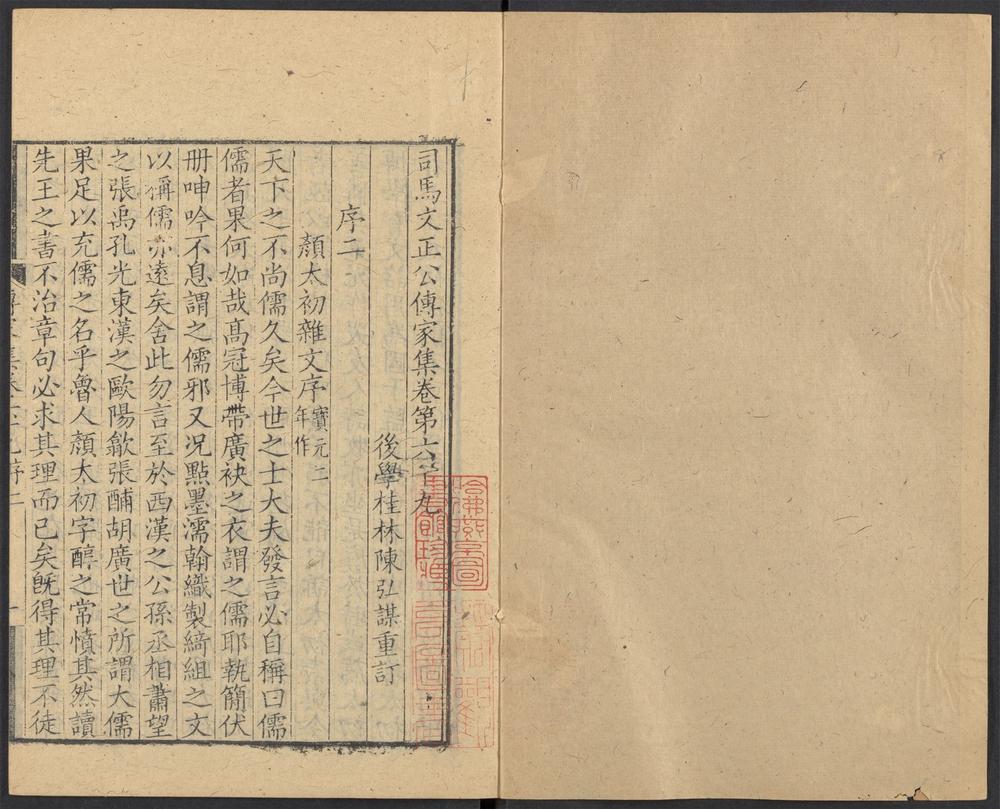 司馬文正公傳家集卷第六十九
後學桂林陳弘謀重訂
序二
顏太初雜文序
寶元二
年作
天下之不尚儒久矣今世之士大夫發言必自稱曰儒
儒者果何如哉高冠博帶廣袂之衣謂之儒耶執簡伏
冊呻吟不息謂之儒邪又况點墨濡翰織製綺組之文
以稱儒亦遠矣舍此勿言至於西漢之公孫丞相蕭望
之張禹孔光東漢之歐陽歙張酺胡廣世之所謂大儒
果足以充儒之名乎魯人顏太初字醇之常憤其然讀
先王之書不治章句必求其理而已矣旣得其理不徒